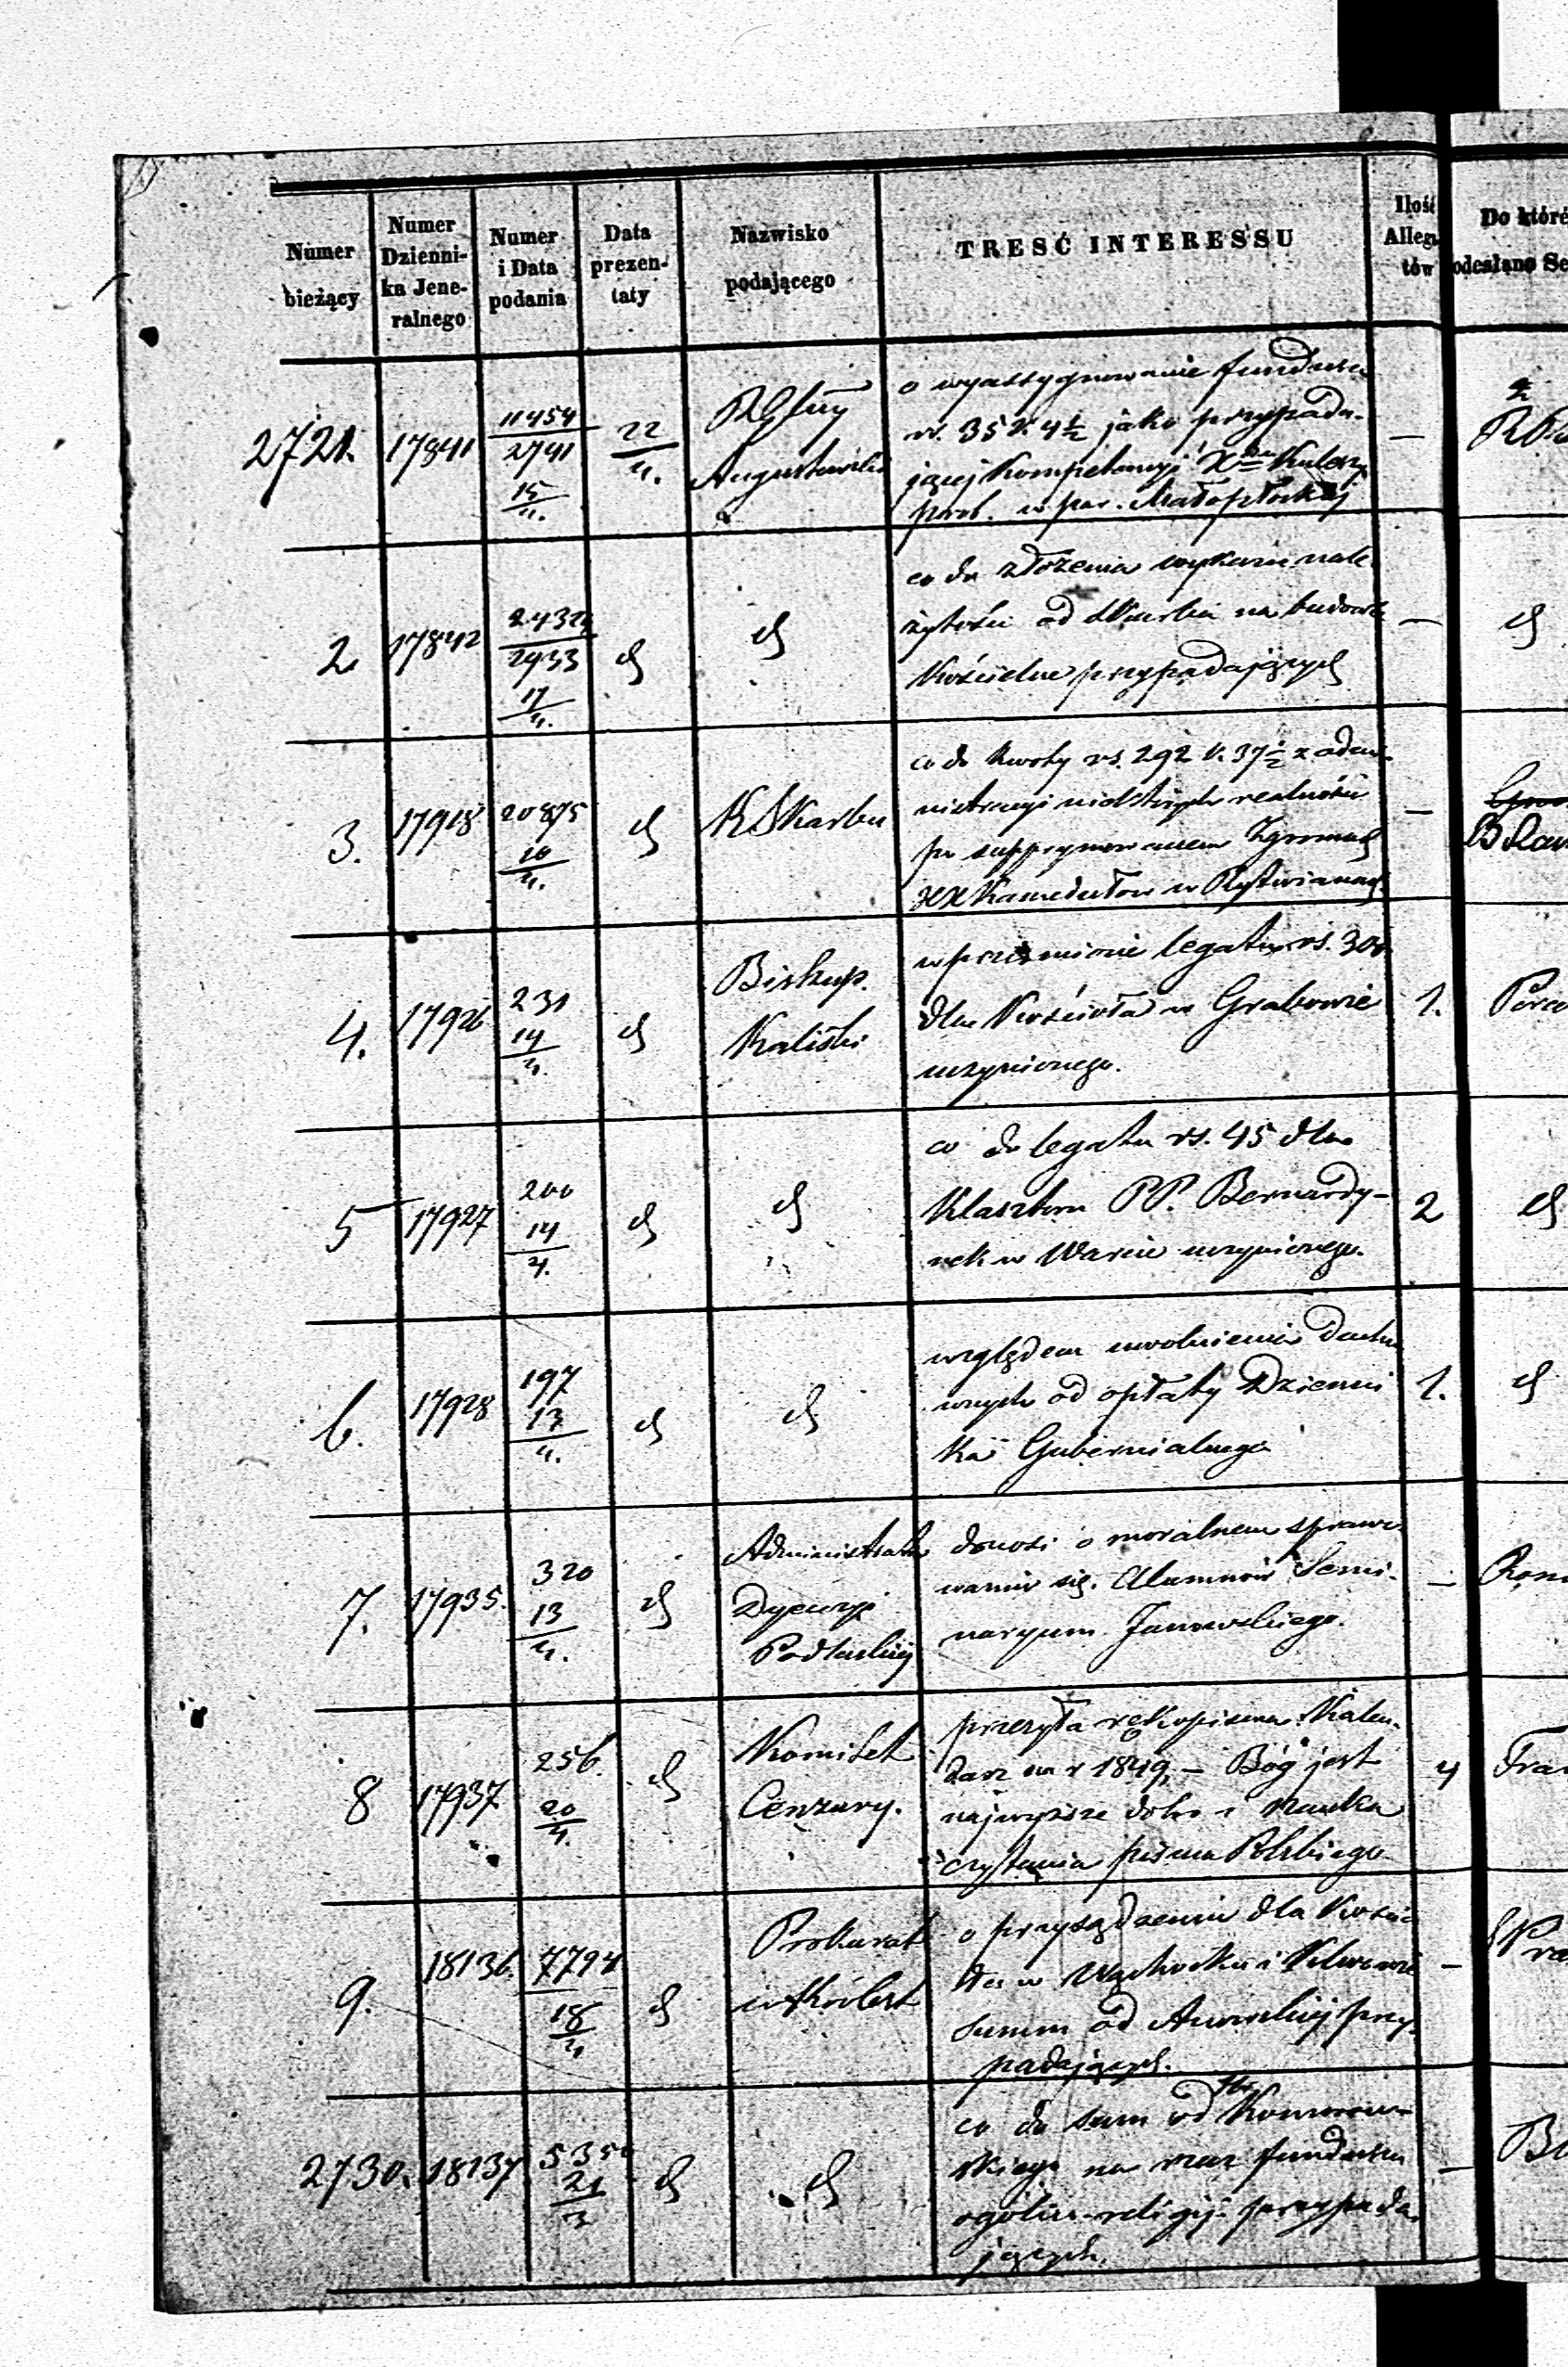 Numer
bieżący
Numer
Dzienni-
ka Jene-
ralnego
Numer
i Data
podania
Data
prezen-
taty
Nazwisko
podającego
TRESĆ INTERESSU
Ilość
Allega
tów
Do które
odesłano Se
2721.
17841
11454
2741
15
4.
22
4.
Augustowski
o wyassygnowanie fundusu
rs. 35 k. 4½ jako przypada-
jącej Kompetencyi
prob. w par. Małopłockiej
—
2
17842
2433
17
4.
d
d
co do złożenia wykazu nale
żytości od Skarbu na budowle
Kościelne przypadających
—
d
3.
17918
20875
10
4.
d
K Skarbu
co do kwoty rs. 292 k. 37½ z admi-
nistracyi niektórych realności
po suppressyonowaniu Zgromad
XX Kamedułów w Rytwianach
—
4.
17926
231
14
4.
d
Biskup
Kaliski
w przedmiocie legatu rs. 300
dla Kościoła w Grabowie
uczynionego.
1.
5
17927
200
14
4.
d
d
co do legatu rs. 45 dla
Klasztoru PP. Bernardy-
nek w Warcie uczynionego.
2
d
6.
17928
197
13
4.
d
d
względem uwolnienia Ducho
wnych od opłaty Dzienni
ka Gubernialnego
1.
d
7.
17935.
320
13
4.
d
Administrator
Dyecezyi
Podlaskiej
donosi o moralnem sprawo
waniu się Alumnów Semi-
naryum Janowskiego.
—
8
17937
256.
20
4.
d
Komitet
Cenzury.
przesyła rękopisma: Kalen-
darz na r 1849, — Bóg jest
najwyższe dobro i Nauka
czytania pisma Polskiego
4
9.
18136.
7794
18
4
d
Prokurat
w Królest
o przysądzeniu dla Kościo
ła w Wąchocku i
summ od przy-
padających.
—
2730.
18137
5350
21
3
d
d
co do sum od Komorow-
skiego na rzecz fundusu
ogólno-religij. przypada-
jących.
—